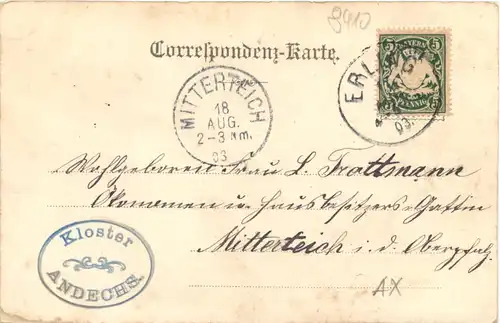 8910
Correspondenz-Karte.
BAYERN
5 5
PFENNIG
ERL
03.
MITTERTEICH
18
AUG.
2-3 Nm.
03
Wohlgeboren Frau L. Trottmann
Ökonomen u. Hausbesitzers-Gattin
Mitterteich i. d. Oberpfalz.
Kloster
ANDECHS.
AX